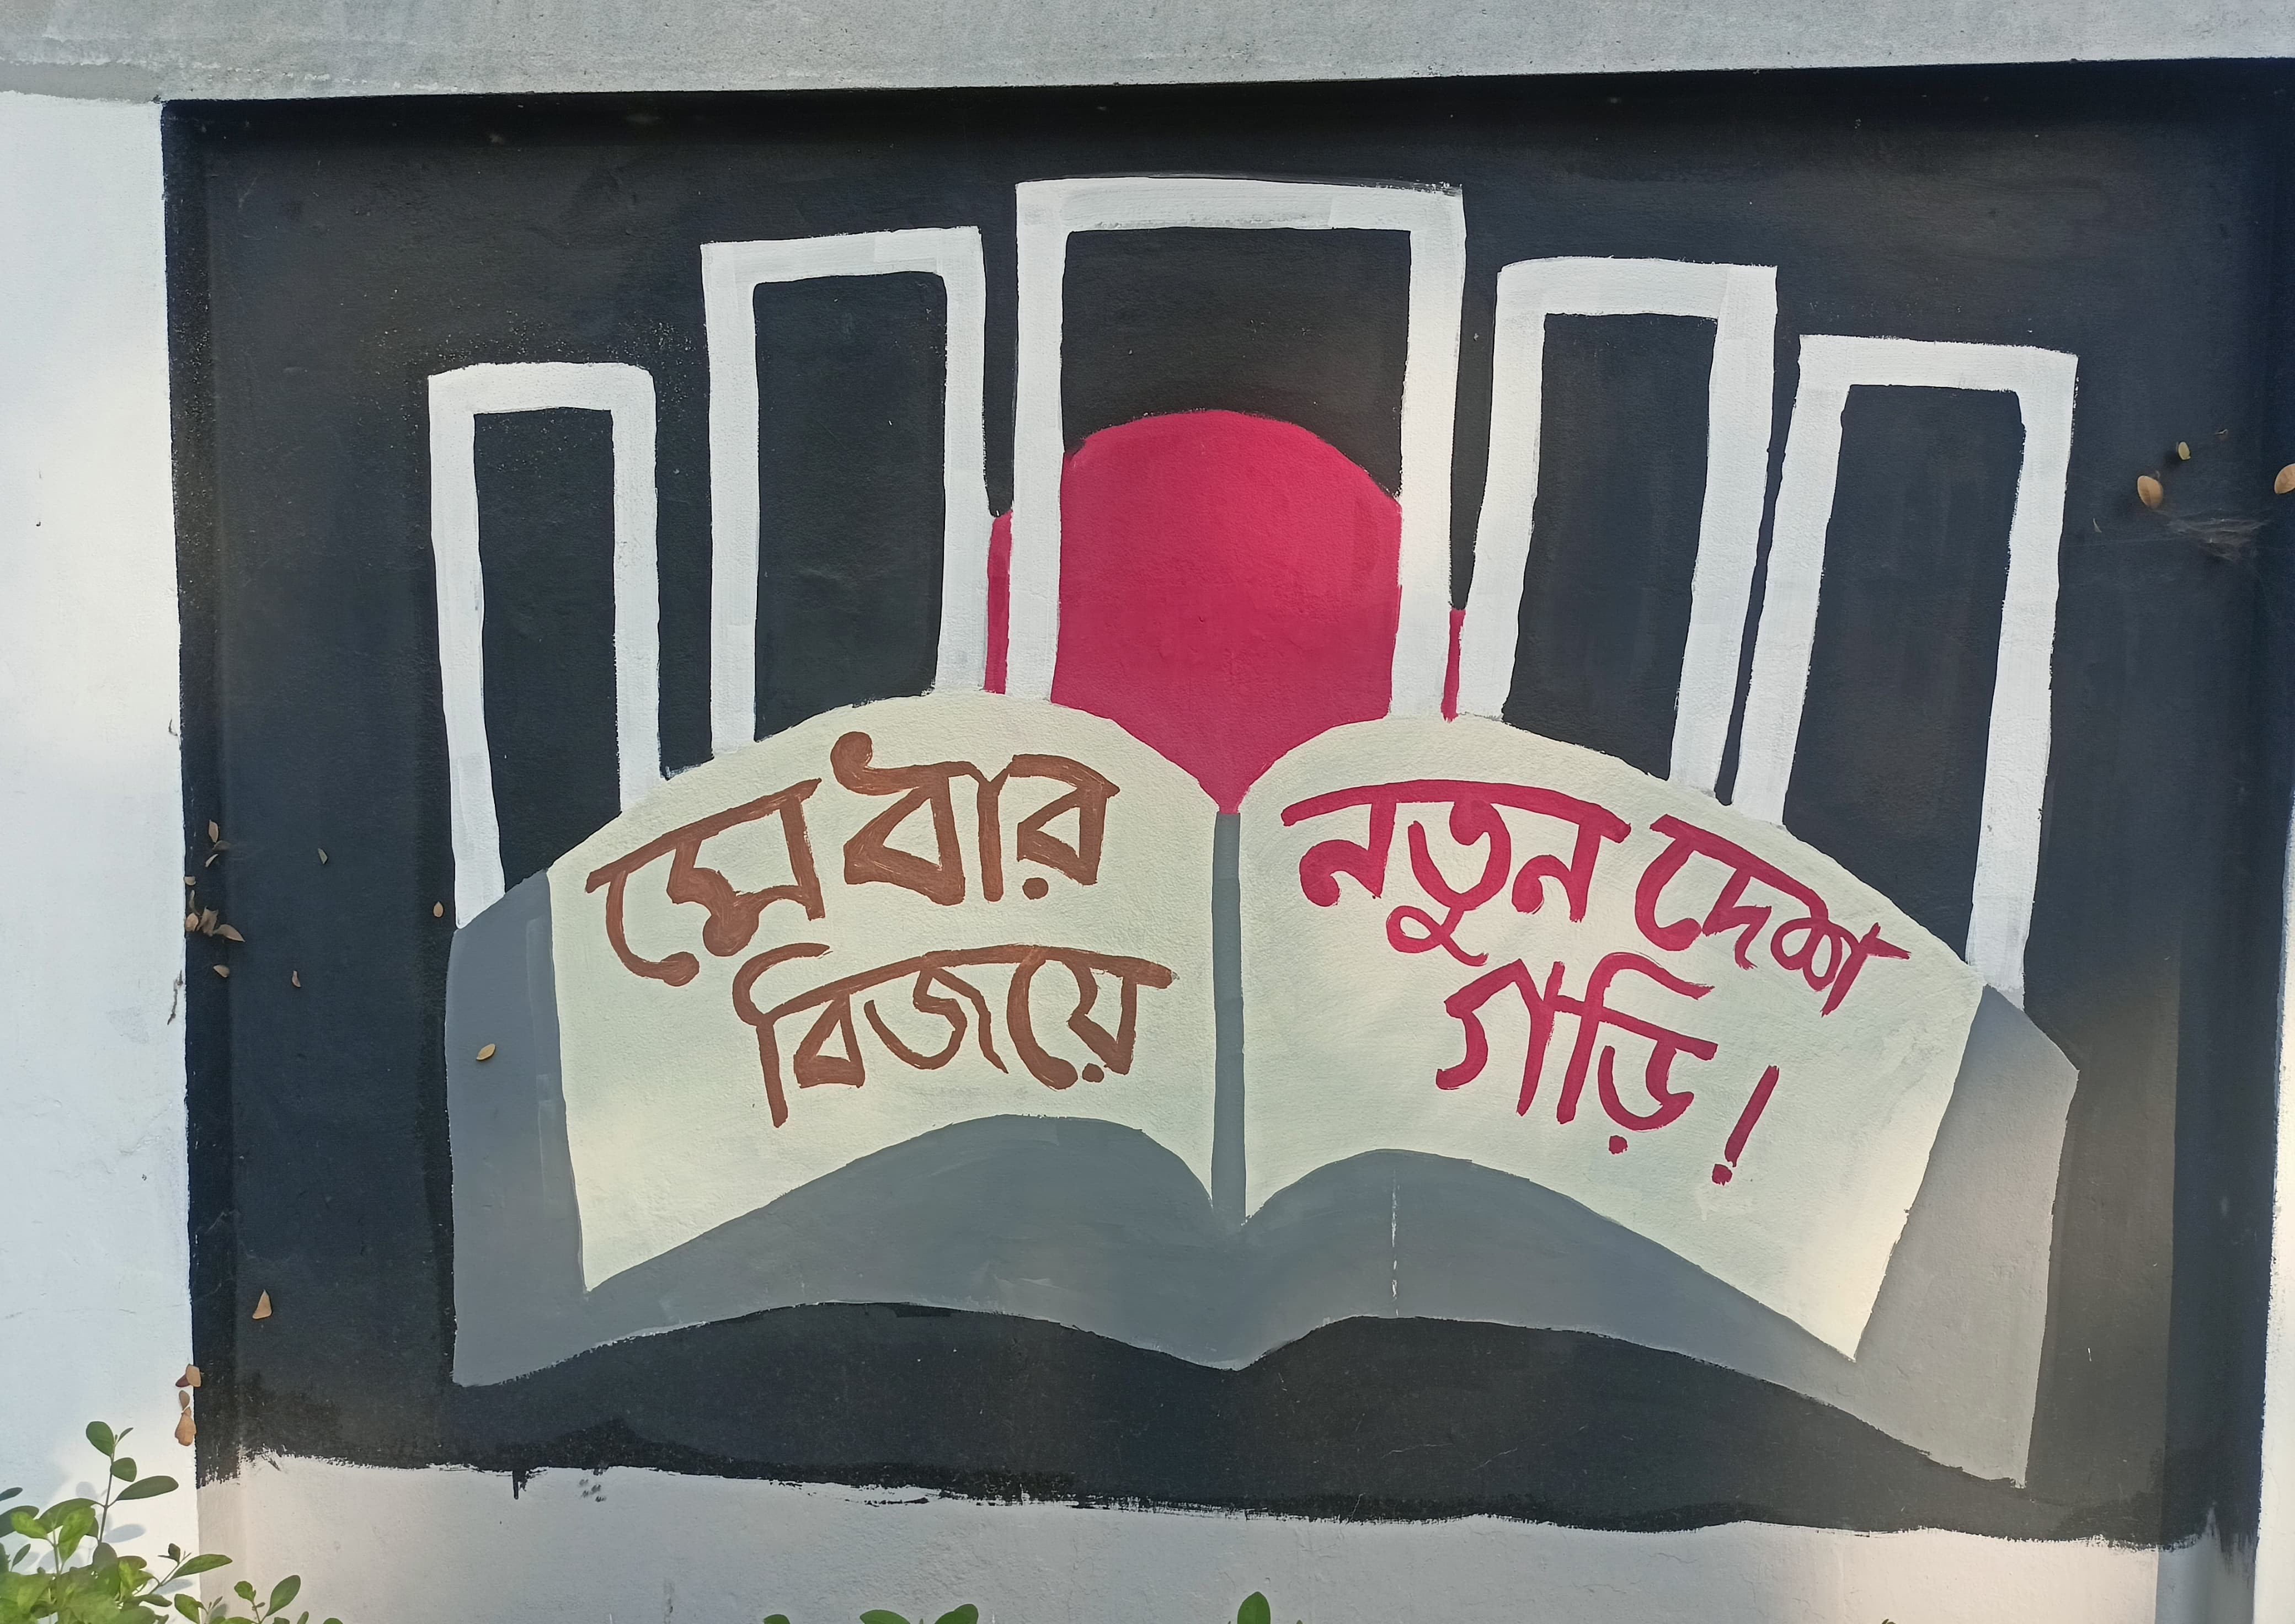 মেধার
বিজয়ে
নতুন দেশ
গড়ি!